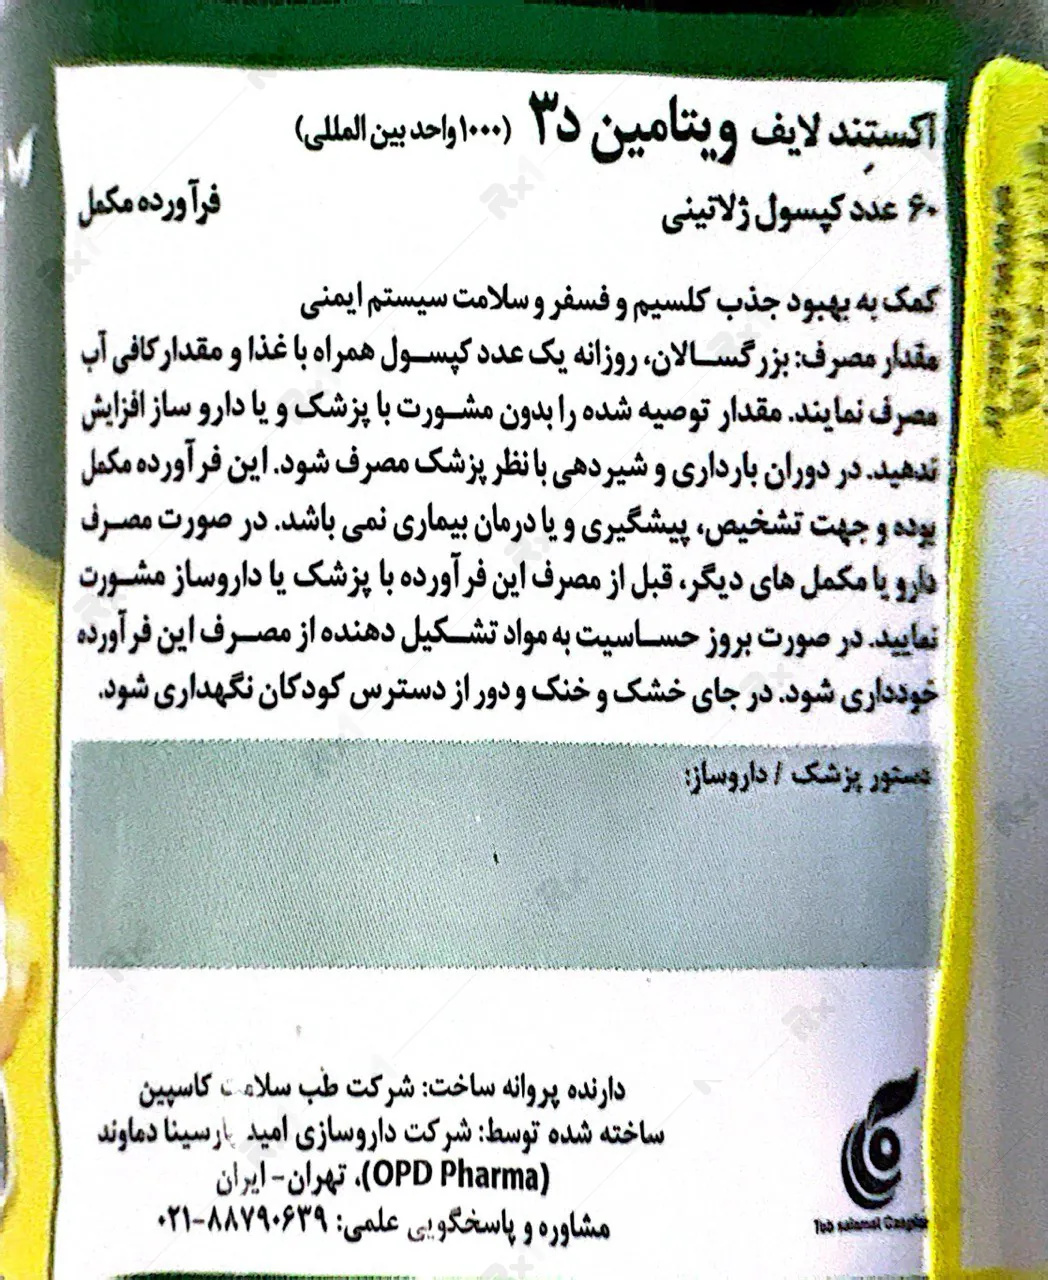 اکستِند لایف ویتامین د۳ (۱۰۰۰ واحد بین المللی)
۶۰ عدد کپسول ژلاتینی
فرآورده مکمل
کمک به بهبود جذب کلسیم و فسفر و سلامت سیستم ایمنی
مقدار مصرف: بزرگسالان، روزانه یک عدد کپسول همراه با غذا و مقدار کافی آب
مصرف نمایند. مقدار توصیه شده را بدون مشورت با پزشک و یا دارو ساز افزایش
ندهید. در دوران بارداری و شیردهی با نظر پزشک مصرف شود. این فرآورده مکمل
بوده و جهت تشخیص، پیشگیری و یا درمان بیماری نمی باشد. در صورت مصرف
دارو یا مکمل های دیگر، قبل از مصرف این فرآورده با پزشک یا داروساز مشورت
نمایید. در صورت بروز حساسیت به مواد تشکیل دهنده از مصرف این فرآورده
خودداری شود. در جای خشک و خنک و دور از دسترس کودکان نگهداری شود.
دستور پزشک / داروساز:
دارنده پروانه ساخت: شرکت طب سلامت کاسپین
ساخته شده توسط: شرکت داروسازی امید پارسینا دماوند
(OPD Pharma)، تهران- ایران
مشاوره و پاسخگویی علمی: ۸۸۷۹۰۶۳۹-۰۲۱
Teb salamat Caspian
Rx1